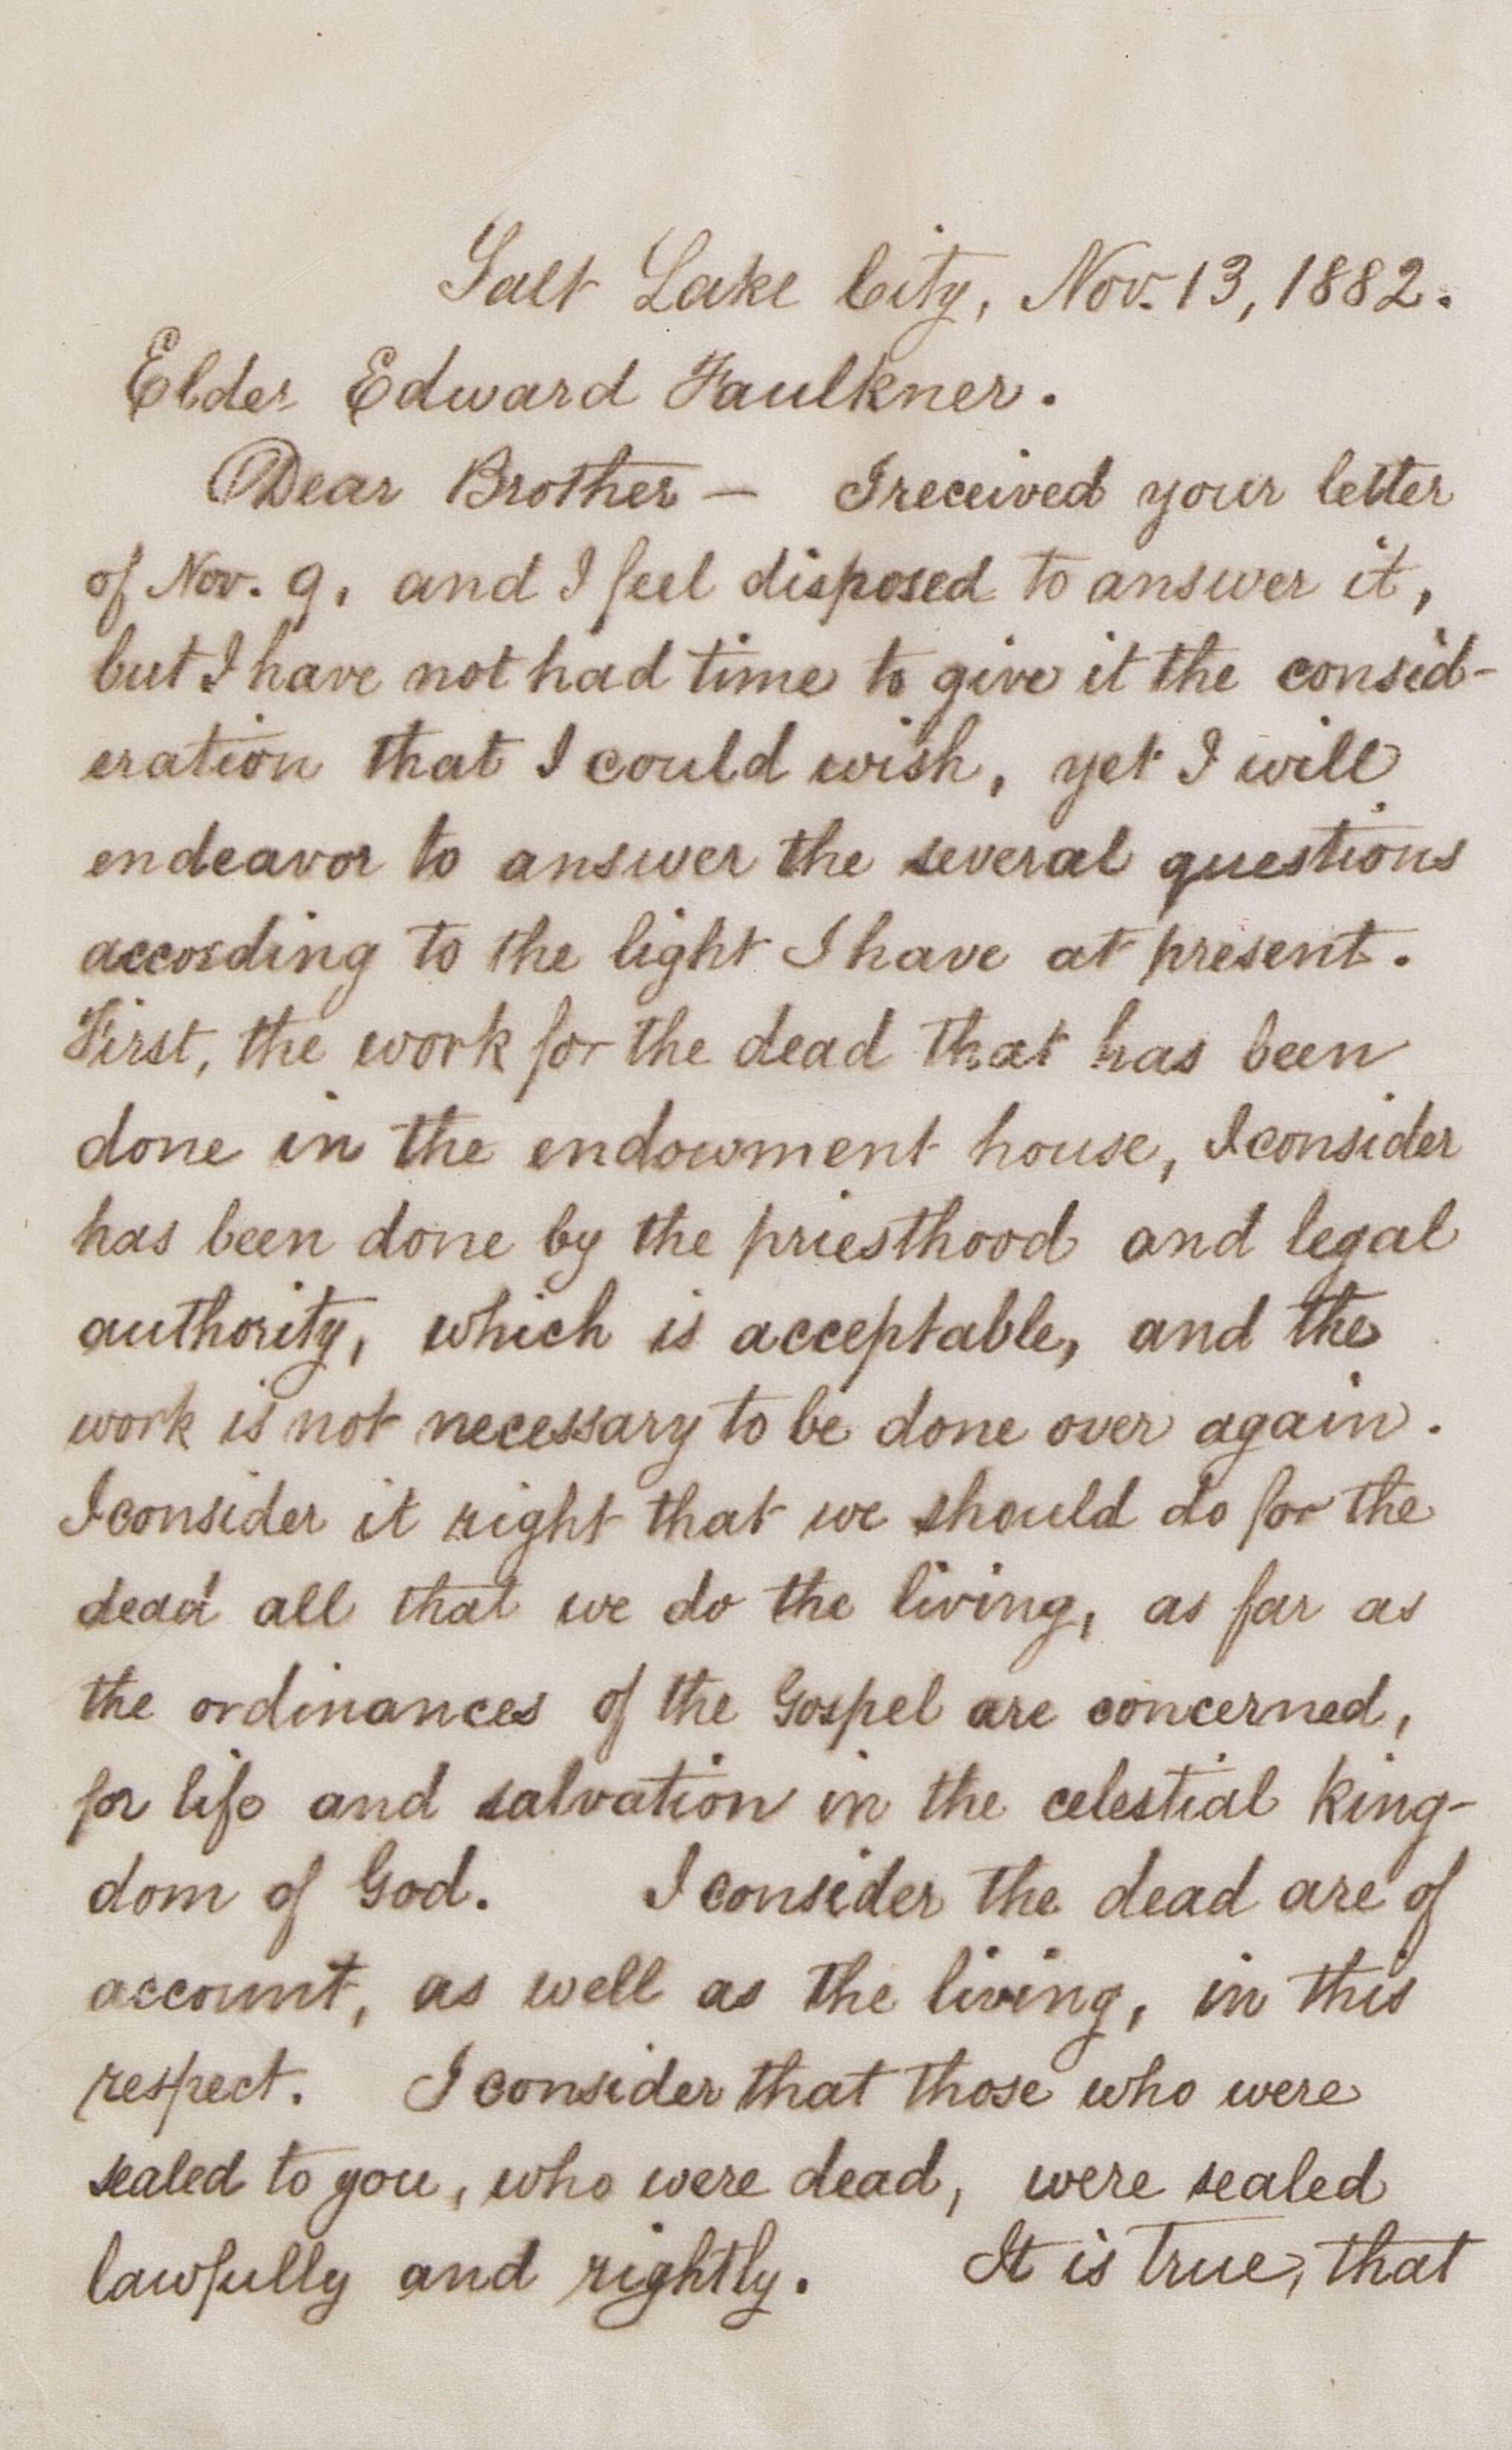 Salt Lake City, Nov. 13, 1882.
Elder Edward Faulkner.
Dear Brother — I received your letter
of Nov. 9, and I feel disposed to answer it,
but I have not had time to give it the consid-
eration that I could wish, yet I will
endeavor to answer the several questions
according to the light I have at present.
First, the work for the dead that has been
done in the endowment house, I consider
has been done by the priesthood and legal
authority, which is acceptable, and the
work is not necessary to be done over again.
I consider it right that we should do for the
dead all that we do the living, as far as
the ordinances of the Gospel are concerned,
for life and salvation in the celestial king-
dom of God. I consider the dead are of
account, as well as the living, in this
respect. I consider that those who were
sealed to you, who were dead, were sealed
lawfully and rightly. It is true, that